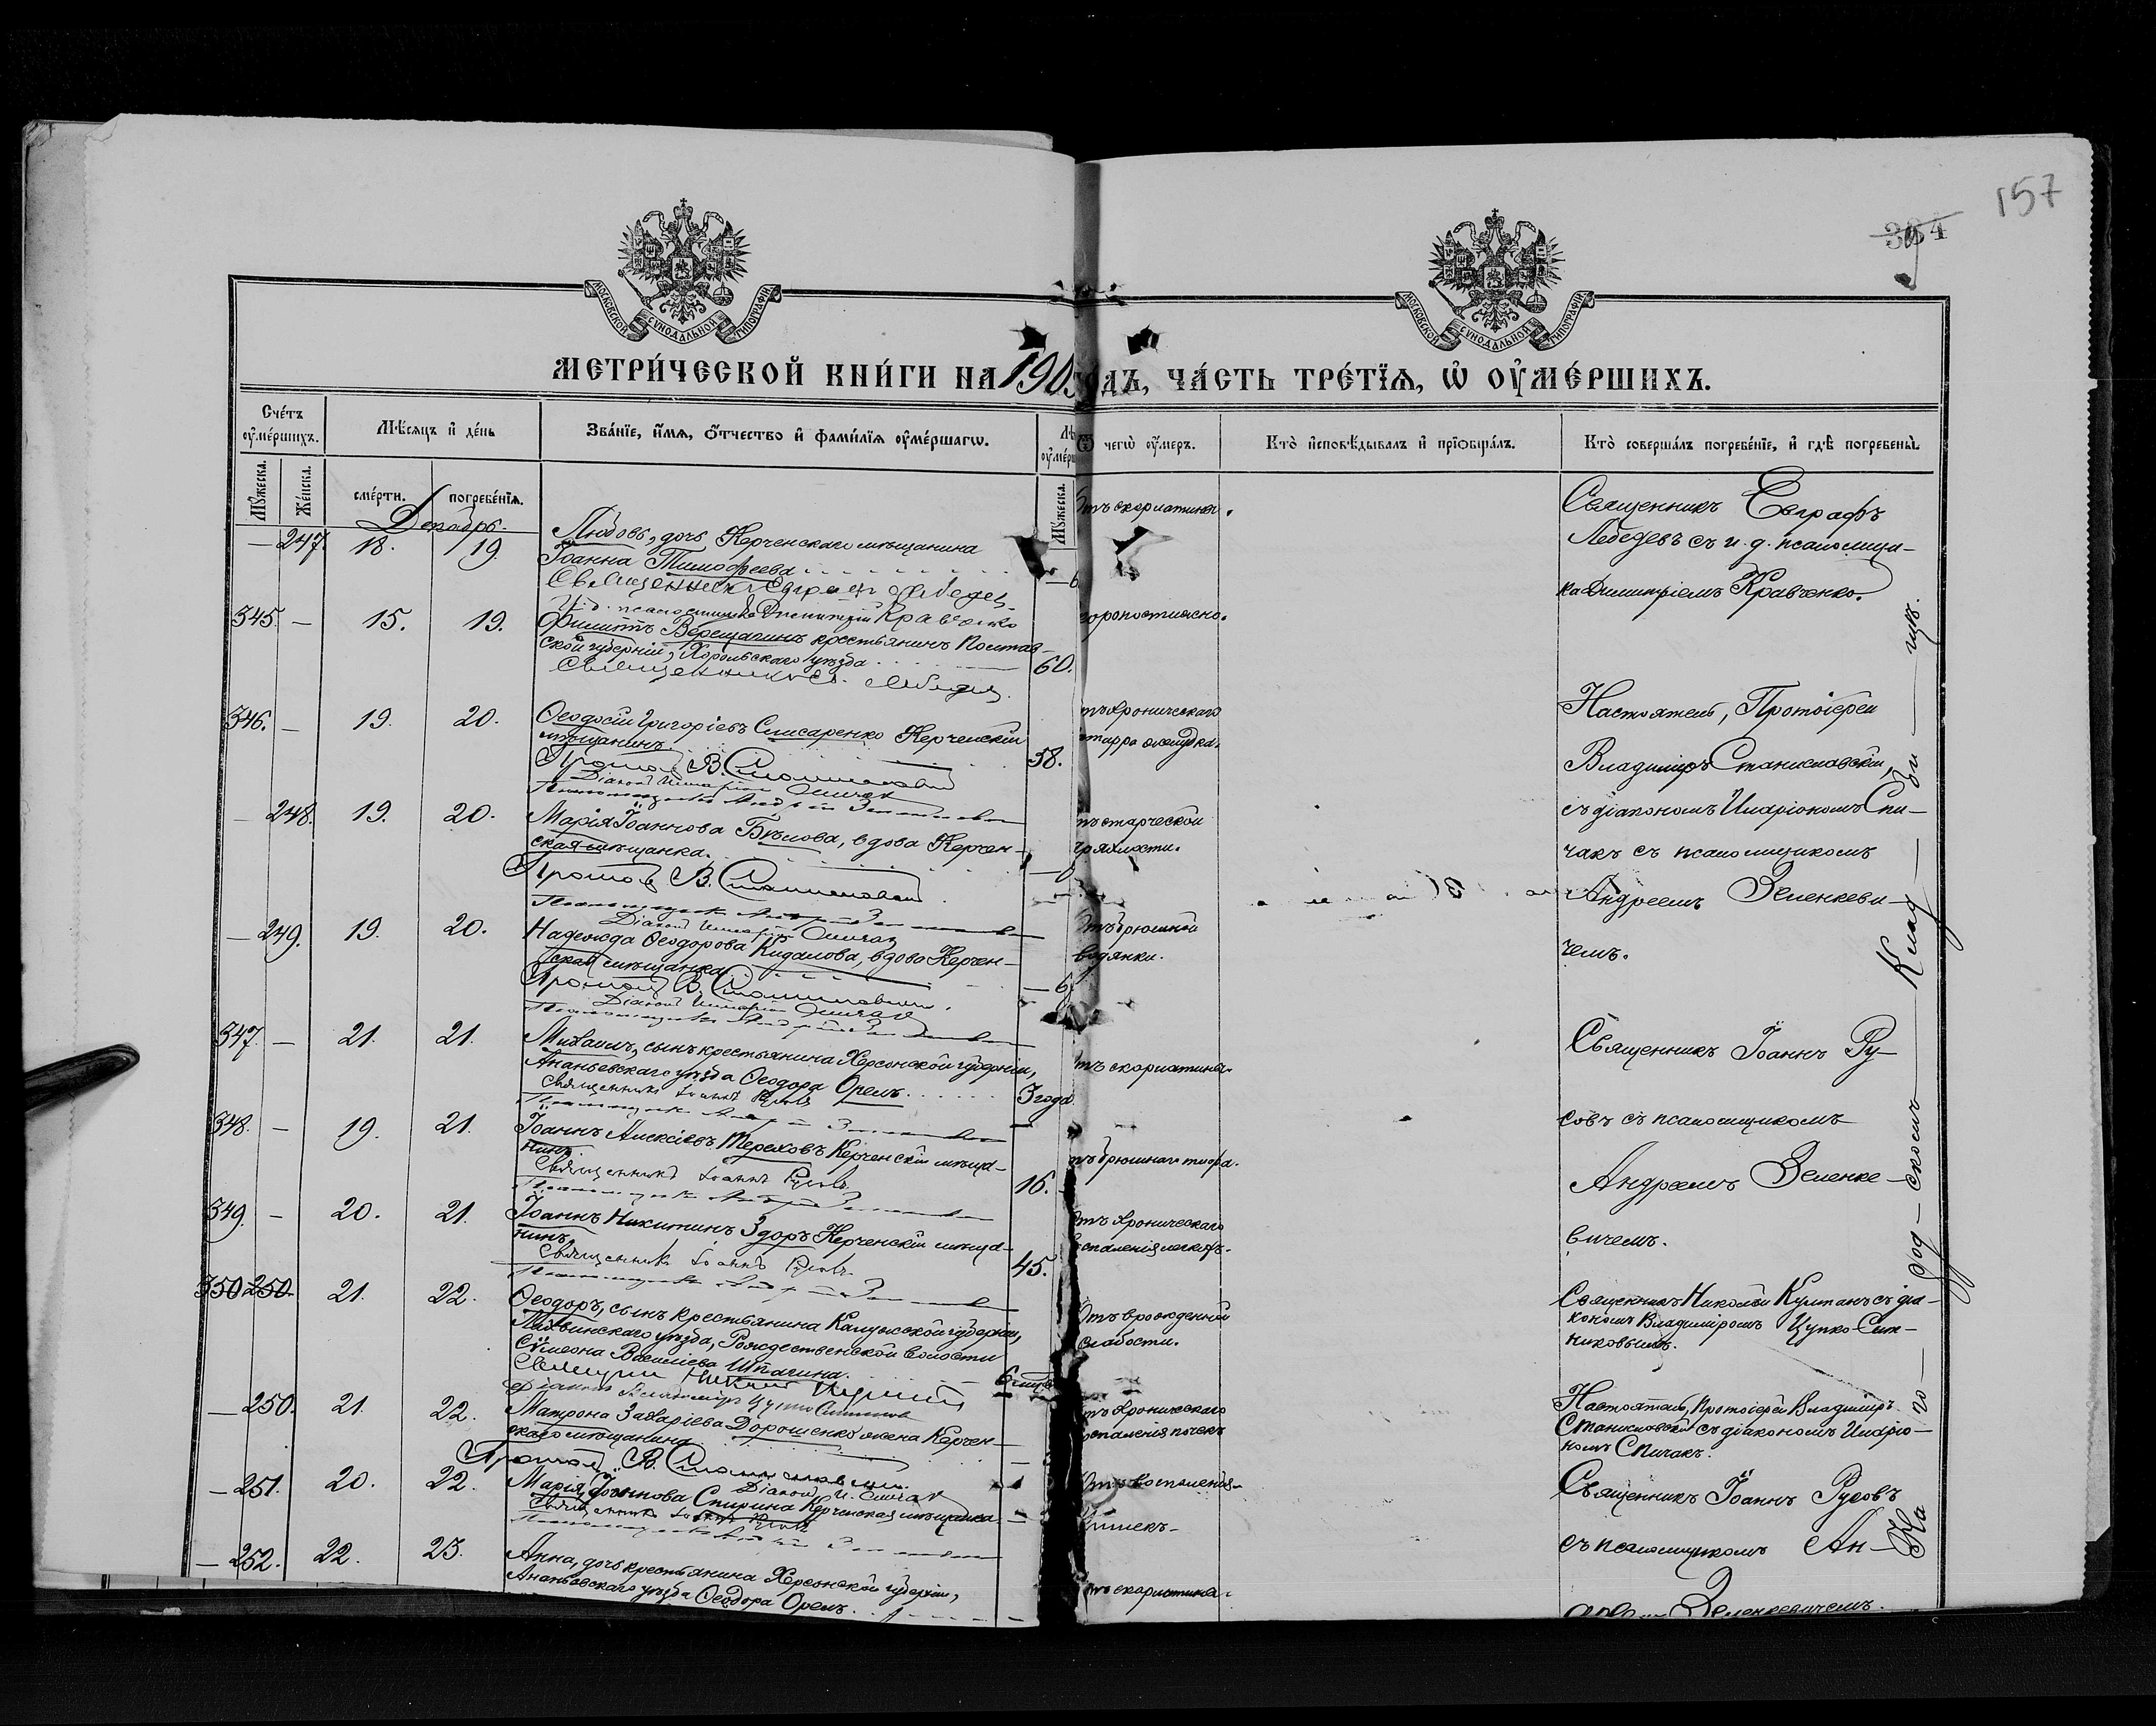 157
304
МОСКОВСКОЙ СѴНОДАЛЬНОЙ ТИПОГРАФІИ
МОСКОВСКОЙ СѴНОДАЛЬНОЙ ТИПОГРАФІИ
МЕТРИ́ЧЕСКОЙ КНИ́ГИ НА 190 ГО́ДЪ, ЧА́СТЬ ТРЕ́ТЇѦ, Ѡ҆ ОУ҆МЕ́РШИХЪ.
Сче́тъ оу҆ме́ршихъ.
Мѣ́сяцъ и҆ де́нь
Зва́нїе, и҆́мѧ, ѻ҆́тчество и҆ фами́лїѧ оу҆ме́ршагѡ.
Лѣ
оу҆ме́рш
Ѿ чегѡ̀ оу҆́меръ.
Кто̀ и҆сповѣ́дывалъ и҆ прїѡбща́лъ.
Кто̀ соверша́лъ погребе́нїе, и҆ гдѣ̀ погребены̀.
Мꙋ́жеска.
Же́нска.
сме́рти.
погребе́нїѧ.
Мꙋ́жеска.
Декабрь.
— 247. 18. 19. Любовь, дочь Керченскаго мѣщанина
Іоанна Тимофеева
Священникъ Евграфъ Лебедев
И. д. псаломщика Димитрій Кравченко
отъ скарлатины.
Священникъ Евграфъ
Лебедевъ съ и. д. псаломщи-
ка Димитріемъ Кравченко.
345. — 15. 19. Филиппъ Верещагинъ крестьянинъ Полтав-
ской губерніи, Хорольскаго уѣзда 60.
Священникъ Е. Лебедев.
скоропостижно.
346. — 19. 20. Ѳеодосій Григоріевъ Слисаренко Керченскій
мѣщанинъ. 58.
Протоі В. Станиславскій
Діаконъ Иларіонъ Спичак
Псаломщикъ Андрей Зеленкевич
отъ хроническаго
катарра желудка.
Настоятель, Протоіерей
Владиміръ Станиславскій,
съ діакономъ Иларіономъ Спи-
чакъ съ псаломщикомъ
Андреемъ Зеленкеви-
чемъ.
— 248. 19. 20. Марія Іоаннова Бѣлова, вдова Керчен-
ская мѣщанка.
Протоі В. Станиславскій
Псаломщикъ Андрей Зеленкевич
Діаконъ Иларіонъ Спичак
отъ старческой
дряхлости.
— 249. 19. 20. Надежда Ѳеодорова Кидалова, вдова Керчен-
ская мѣщанка
Протоі В. Станиславскій.
Діаконъ Иларіонъ Спичак
Псаломщикъ Андрей Зеленкевич
отъ брюшной
водянки.
347. — 21. 21. Михаилъ, сынъ крестьянина Херсонской губерніи,
Ананьевскаго уѣзда Ѳеодора Орелъ. 3 года
Священникъ Іоаннъ Русовъ
Псаломщикъ Андрей Зеленкевич
отъ скарлатины.
Священникъ Іоаннъ Ру-
совъ съ псаломщикомъ
Андреемъ Зеленке-
вичемъ.
348. — 19. 21. Іоаннъ Алексіевъ Тереховъ Керченскій мѣща-
нинъ. 16.
Священникъ Іоаннъ Русовъ
Псаломщикъ Андрей Зеленкевич
отъ брюшнаго тифа.
349. — 20. 21. Іоаннъ Никитинъ Здоръ Керченскій мѣща-
нинъ. 45.
Священникъ Іоаннъ Русовъ
Псаломщикъ Андрей Зеленкевич
отъ хроническаго
воспаленія легкихъ.
350 250. 21. 22. Ѳеодоръ, сынъ крестьянина Калужской губерніи,
Лихвинскаго уѣзда, Рождественской волости
Сѵмеона Василіева Шпагина.
Священник Николай
Діаконъ Владиміръ Цупко Ситников
отъ врожденной
слабости.
Священникъ Николай Култанъ съ діа-
кономъ Владиміромъ Цупко Сит-
никовымъ.
— 250. 21. 22. Матрона Захаріева Дорошенко жена Керчен-
скаго мѣщанина
Протоі В. Станиславскій.
Діаконъ И. Спичак
отъ хроническаго
воспаленія почекъ
Настоятель, Протоіерей Владиміръ
Станиславскій съ діакономъ Иларіо-
номъ Спичакъ.
— 251. 20. 22. Марія Спирина Керченская мѣщанка
Священникъ Іоаннъ Русовъ
Псаломщикъ Андрей Зеленкевич
отъ воспаленія
кишекъ
Священникъ Іоаннъ Русовъ
съ псаломщикомъ Ан-
Зеленкевичемъ.
— 252. 22. 23. Анна, дочь крестьянина Херсонской губерніи,
Ананьевскаго уѣзда Ѳеодора Орелъ.
отъ скарлатины.
На — го — род — скомъ — Клад — би — щѣ.